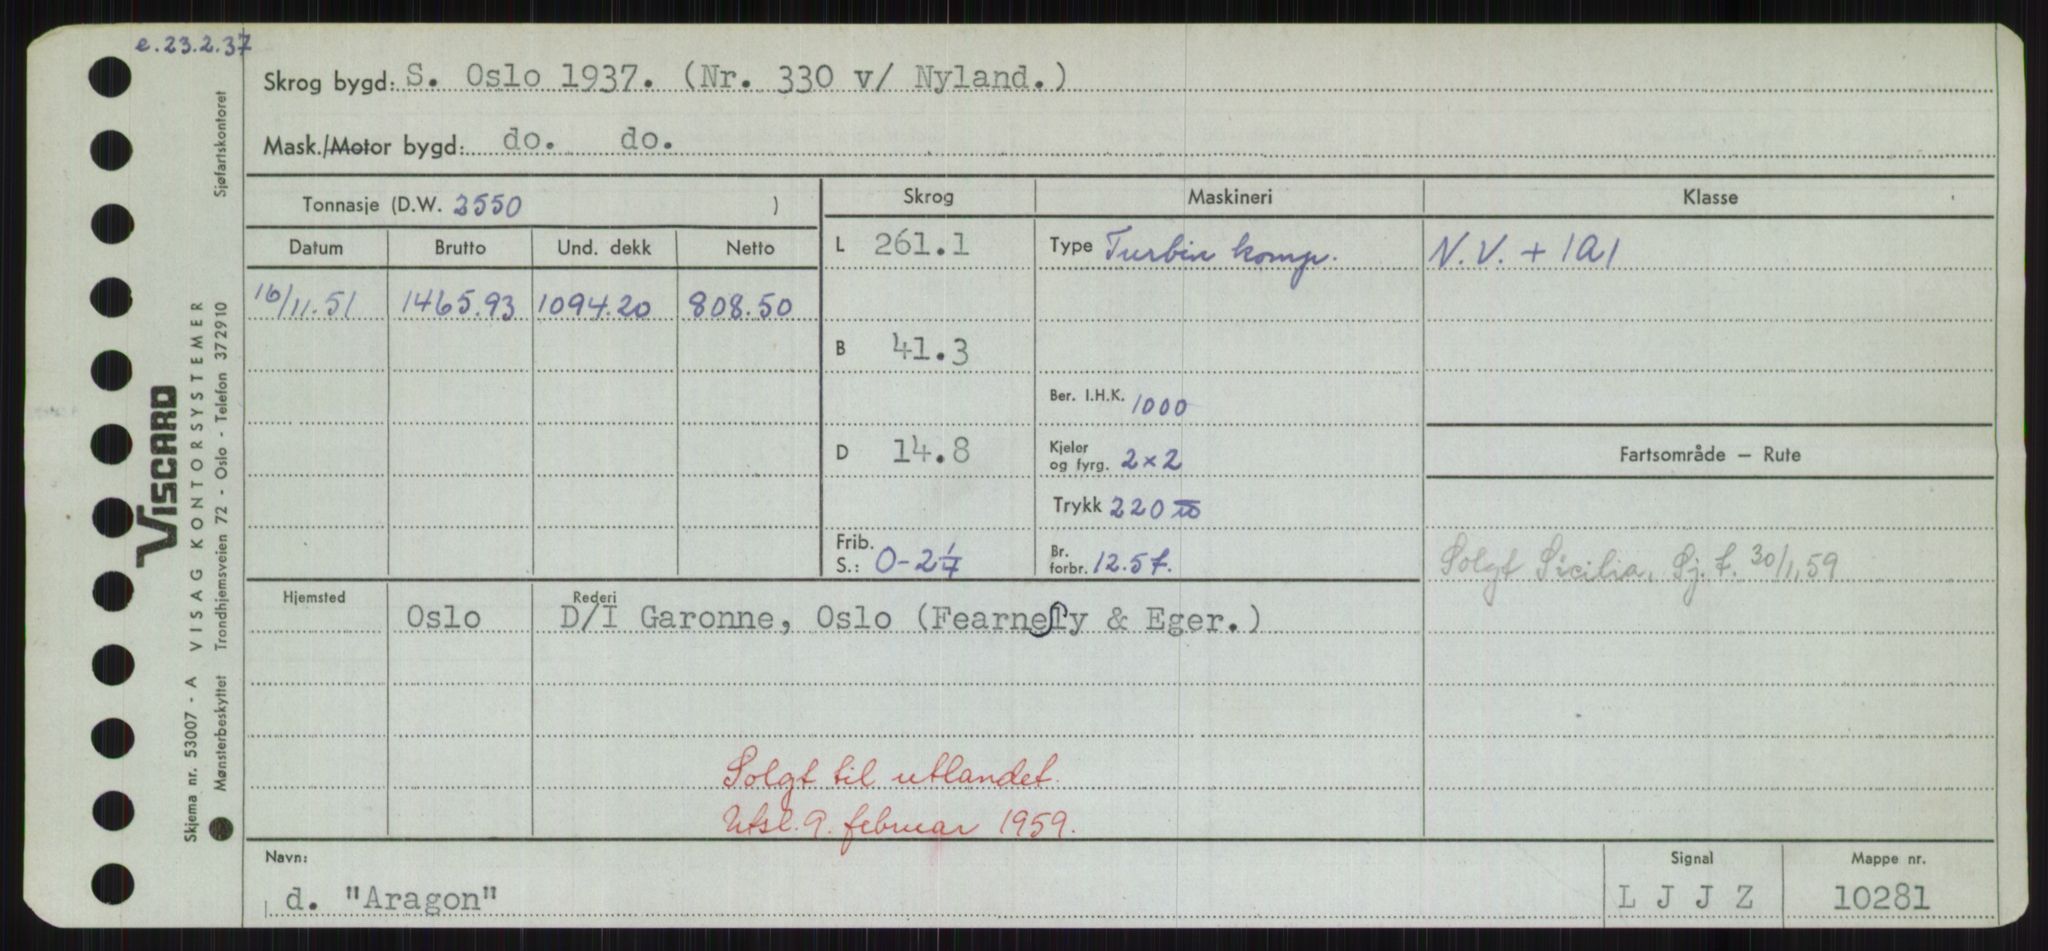 e. 23.2.37
Skrog bygd: S. Oslo 1937. (Nr. 330 v/ Nyland.)
Mask./Motor bygd: do. do.
Tonnasje (D.W. 2550 )
Datum Brutto Und. dekk Netto
16/11.51 1465.93 1094.20 808.50
Skrog Maskineri Klasse
L 261.1 Type Turbin komp. N.V. + 1A1
B 41.3
Ber. I.H.K. 1000
D 14.8 Kjeler og fyrg. 2x2
Fartsområde — Rute
Trykk 220
Frib. S.: 0-2 Br. forbr. 12.5 t.
Solgt Sicilia, Sj. f. 30/1, 59
Hjemsted Rederi
Oslo D/I Garonne, Oslo (Fearnely & Eger.)
Solgt til utlandet.
Utsl. 9. februar 1959.
Navn: Signal Mappe nr.
d. "Aragon" L J J Z 10281
VISCARD
Skjema nr. 53007 - A VISAG KONTORSYSTEMER
Mønsterbeskyttet Trondhjemsveien 72 - Oslo - Telefon 372910 Sjøfartskontoret